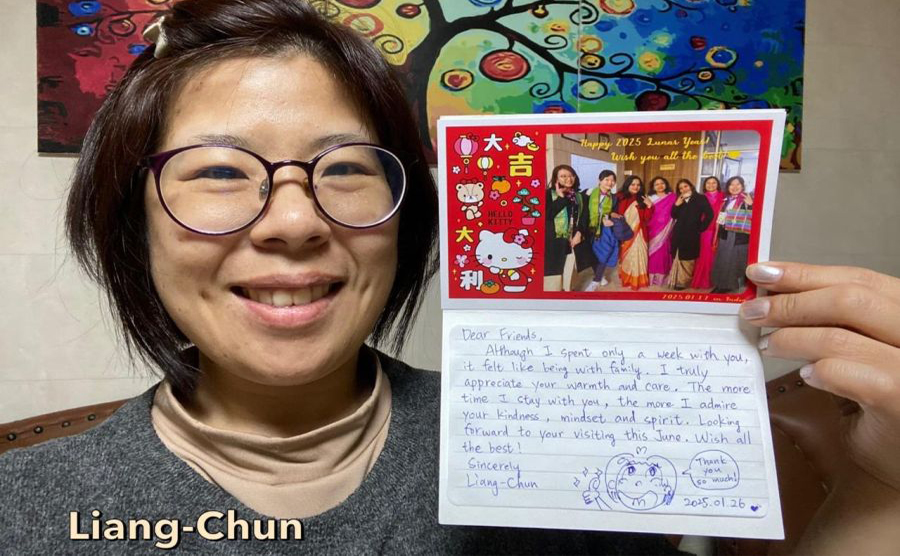 大
吉
HELLO
KITTY
大
利
Happy 2025 Lunar Year!
Wish you all the best!
2025.01.17 in India
Dear Friends,
Although I spent only a week with you,
it felt like being with family. I truly
appreciate your warmth and care. The more
time I stay with you, the more I admire
your kindness, mindset and spirit. Looking
forward to your visiting this June. Wish all
the best!
Sincerely
Liang-Chun
Thank
you
so much!
2025.01.26
Liang-Chun